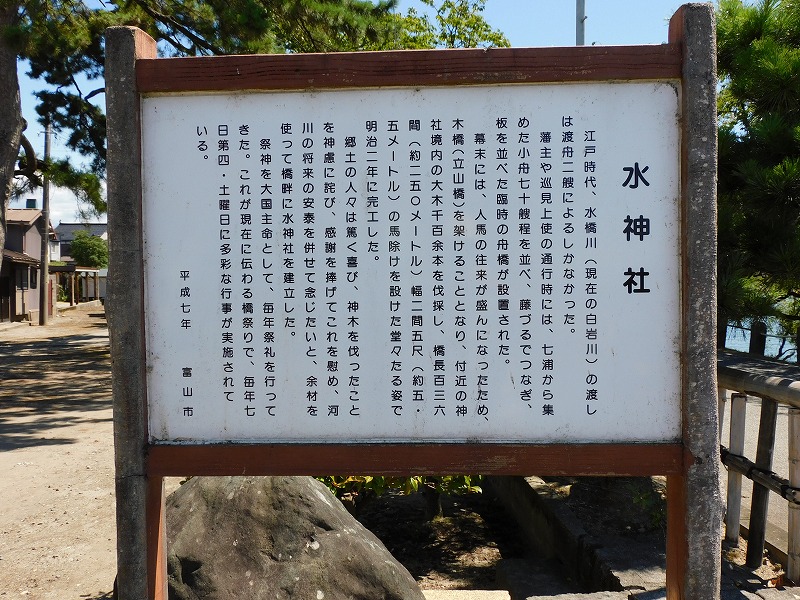 水神社
江戸時代、水橋川（現在の白岩川）の渡し
は渡舟二艘によるしかなかった。
藩主や巡見上使の通行時には、七浦から集
めた小舟七十艘程を並べ、藤づるでつなぎ、
板を並べた臨時の舟橋が設置された。
幕末には、人馬の往来が盛んになったため、
木橋（立山橋）を架けることとなり、付近の神
社境内の大木千百余本を伐採し、橋長百三六
間（約二五〇メートル）幅二間五尺（約五・
五メートル）の馬除けを設けた堂々たる姿で
明治二年に完工した。
郷土の人々は篤く喜び、神木を伐ったこと
を神慮に詫び、感謝を捧げてこれを慰め、河
川の将来の安泰を併せて念じたいと、余材を
使って橋畔に水神社を建立した。
祭神を大国主命として、毎年祭礼を行って
きた。これが現在に伝わる橋祭りで、毎年七
日第四・土曜日に多彩な行事が実施されて
いる。
平成七年　富山市